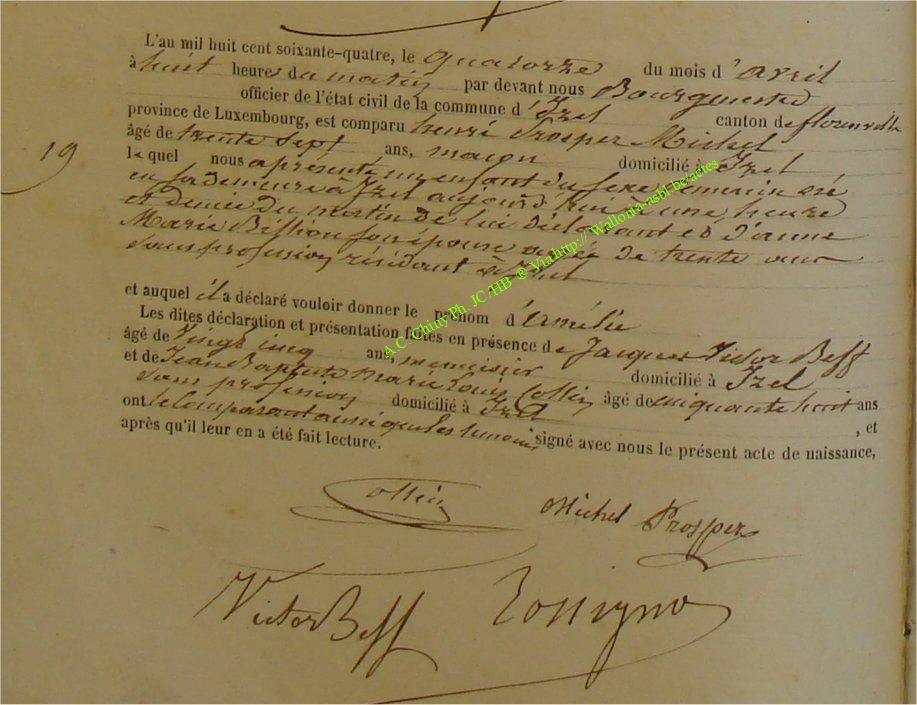 L'an mil huit cent soixante-quatre, le quatorze du mois d'avril
à huit heures du matin par devant nous Bourgmestre
officier de l'état civil de la commune d'Izel canton de florenville
province de Luxembourg, est comparu henri Prosper Michel
âgé de trente sept ans, maçon domicilié à Izel
19
lequel nous a présenté un enfant du sexe féminin né
en sa demeure à Izel aujourd'hui à une heure
et demie du matin de lui déclarant et d'anne
Marie son épouse agée de trente ans
sans profession résidant à Izel
et auquel il a déclaré vouloir donner le prénom d'amélie
Les dites déclaration et présentation faites en présence de Jacques Victor Beff
âgé de vingt cinq ans, menuisier domicilié à Izel
et de Jean Baptiste marie louis Collin âgé de cinquante huit ans
sans profession domicilié à Izel , et
ont le comparant ainsi que les temoins signé avec nous le présent acte de naissance,
après qu'il leur en a été fait lecture.
A.C. Chiny Ph. JC-HB ® Via http://Wallonia-asbl.be/actes
Collin
Michel Prosper
Victor Beff
Rossignon